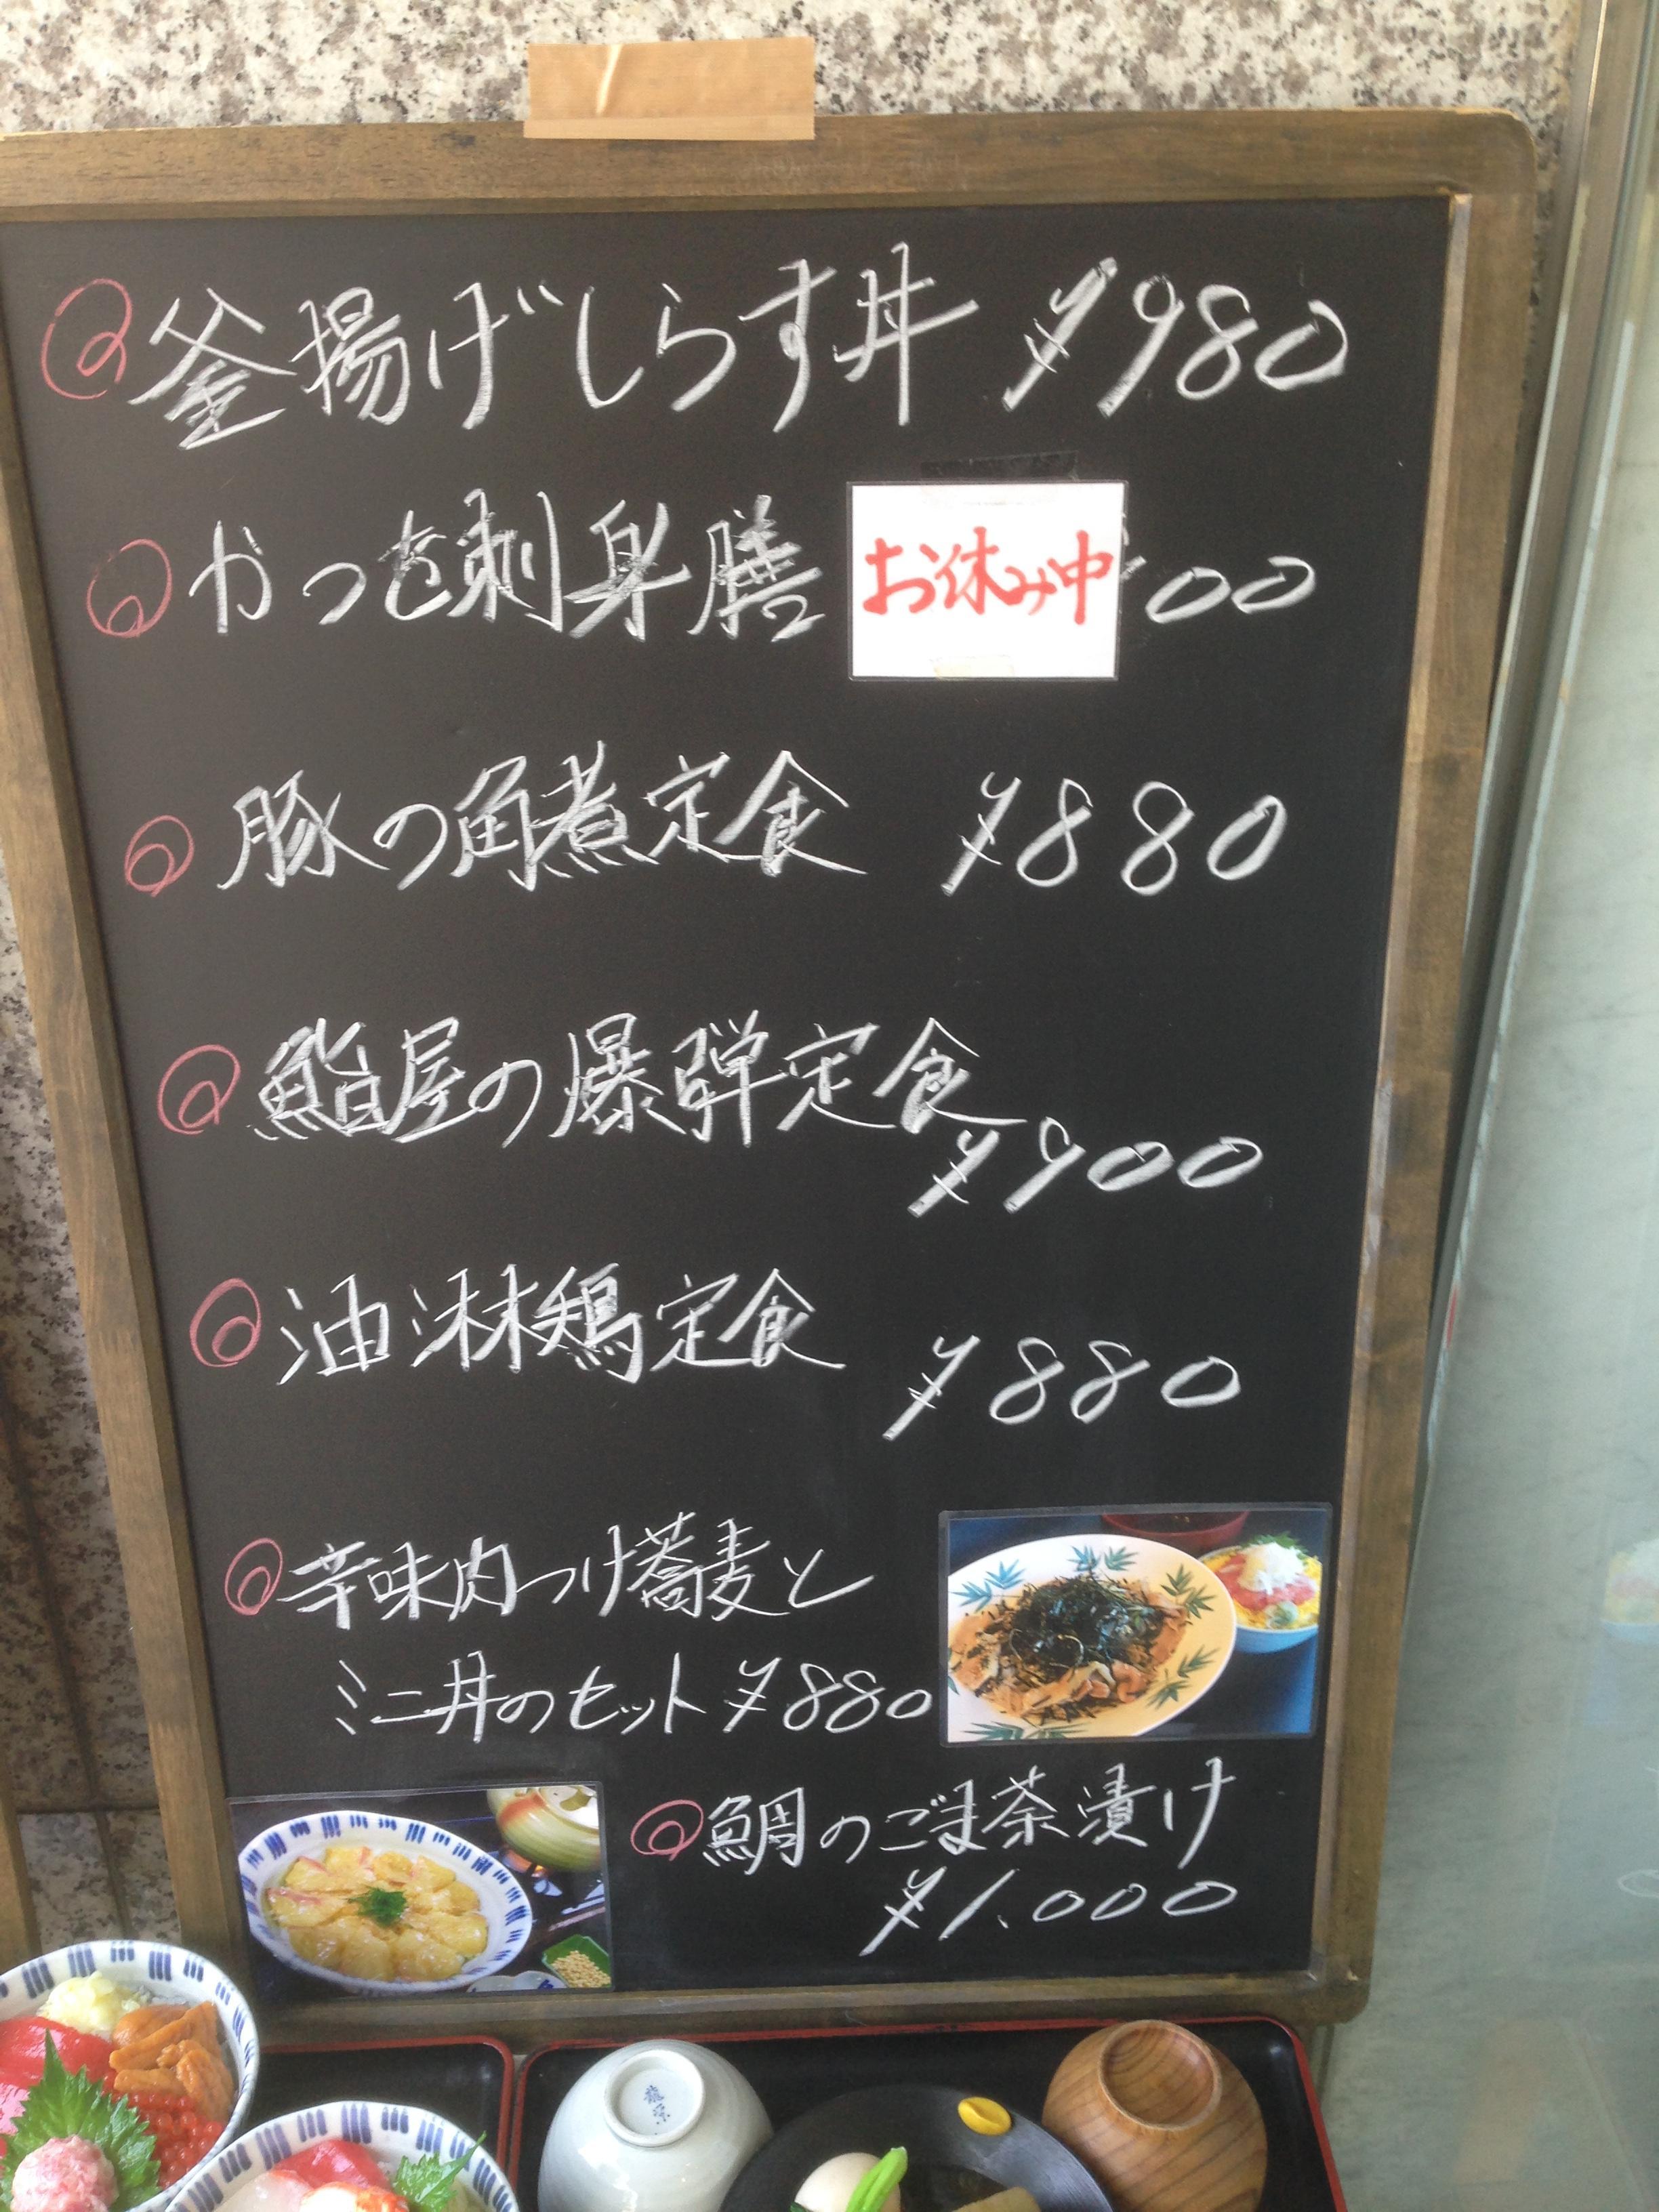 釜揚げしらす丼 ¥980
かつを刺身膳 お休み中 00
豚の角煮定食 ¥880
鮨屋の爆弾定食
¥900
油淋鶏定食
¥880
辛味肉つけ蕎麦と
ミニ丼のセット ¥880
鯛のごま茶漬け
¥1.000